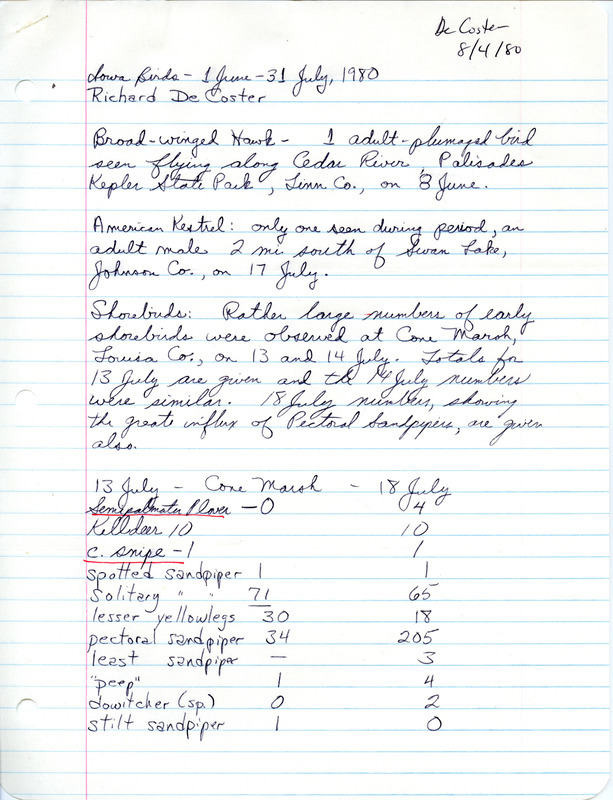 De Coster
8/4/80
Iowa Birds - 1 June - 31 July, 1980
Richard De Coster
Broad-winged Hawk - 1 adult-plumaged bird
seen flying along Cedar River, Palisades
Kepler State Park, Linn Co., on 8 June.
American Kestrel: only one seen during period, an
adult male 2 mi south of Swan Lake,
Johnson Co., on 17 July.
Shorebirds: Rather large numbers of early
shorebirds were observed at Cone Marsh,
Louisa Co., on 13 and 14 July. Totals for
13 July are given and the 14 July numbers
were similar. 18 July numbers, showing
the great influx of Pectoral Sandpipers, are given
also.
13 July - Cone Marsh - 18 July
Semipalmater Plover - 0 4
Killdeer 10 10
c. snipe - 1 1
spotted sandpiper 1 1
Solitary " " 71 65
lesser yellowlegs 30 18
pectoral sandpiper 34 205
least sandpiper — 3
"peep" 1 4
dowitcher (sp.) 0 2
stilt sandpiper 1 0